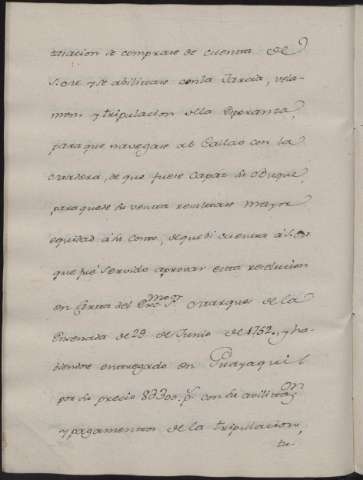 triacion se comprare de cuenta de
S. M. y se abilitare con la Jarcia, vela-
men, y tripulacion de la Esperanza,
para que navegare al Callao con la
madera, de que fuese capaz su Buque
para que de su venta resultare mayor
equidad a su costo, de que di cuenta a S. M.
que fue servido aprovar esta resolucion
en Carta del Exc.mo S.r Marques de la
Ensenada de 29 de Junio de 1752, y ha-
viendose entregado en Guayaquil
por su precio 83300. p.s con la avilitaz.on
y pagamentos de la tripulacion,
tu